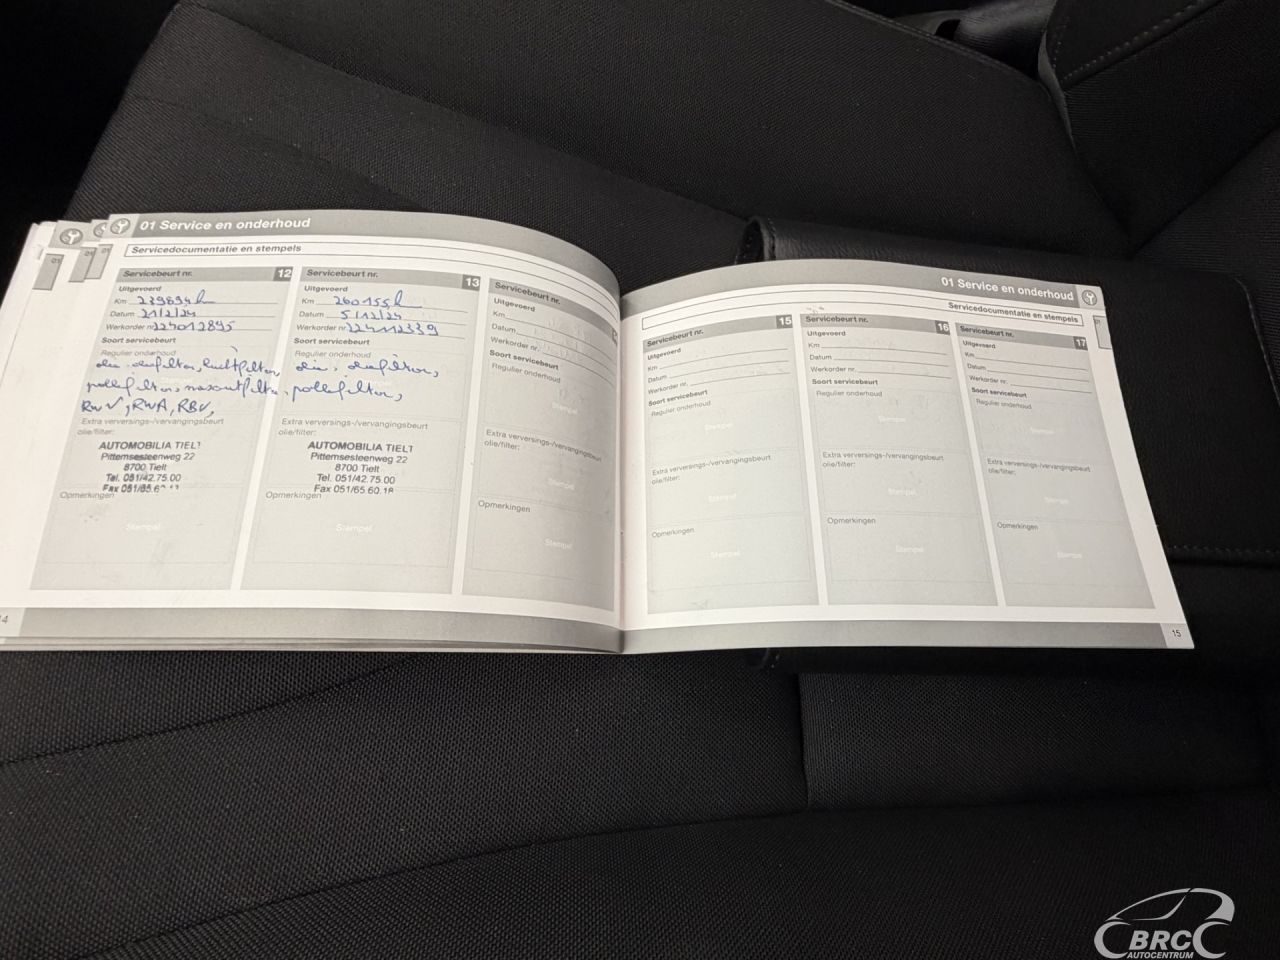 01 Service en onderhoud
Servicedocumentatie en stempels
Servicebeurt nr. 12
Uitgevoerd
Km 239894 h
Datum 21/2/24
Werkorder nr. 224012895
Soort servicebeurt
Regulier onderhoud
olie, oliefilter, luchtfilter,
pollefilter, mazoutfilter,
RWV, RWA, RBV,
Extra verversings-/vervangingsbeurt
olie/filter:
AUTOMOBILIA TIELT
Pittemsesteenweg 22
8700 Tielt
Tel. 051/42.75.00
Fax 051/65.60.18
Opmerkingen
Stempel
Servicebeurt nr. 13
Uitgevoerd
Km 260155 h
Datum 5/12/24
Werkorder nr. 224112339
Soort servicebeurt
Regulier onderhoud
olie, oliefilter,
pollefilter,
Extra verversings-/vervangingsbeurt
olie/filter:
AUTOMOBILIA TIELT
Pittemsesteenweg 22
8700 Tielt
Tel. 051/42.75.00
Fax 051/65.60.18
Opmerkingen
Stempel
Servicebeurt nr.
Uitgevoerd
Km
Datum
Werkorder nr.
Soort servicebeurt
Regulier onderhoud
Stempel
Extra verversings-/vervangingsbeurt
olie/filter:
Stempel
Opmerkingen
Stempel
14
01 Service en onderhoud
Servicedocumentatie en stempels
Servicebeurt nr. 15
Uitgevoerd
Km
Datum
Werkorder nr.
Soort servicebeurt
Regulier onderhoud
Stempel
Extra verversings-/vervangingsbeurt
olie/filter:
Stempel
Opmerkingen
Stempel
Servicebeurt nr. 16
Uitgevoerd
Km
Datum
Werkorder nr.
Soort servicebeurt
Regulier onderhoud
Stempel
Extra verversings-/vervangingsbeurt
olie/filter:
Stempel
Opmerkingen
Stempel
Servicebeurt nr. 17
Uitgevoerd
Km
Datum
Werkorder nr.
Soort servicebeurt
Regulier onderhoud
Stempel
Extra verversings-/vervangingsbeurt
olie/filter:
Stempel
Opmerkingen
Stempel
15
BRC
AUTOCENTRUM